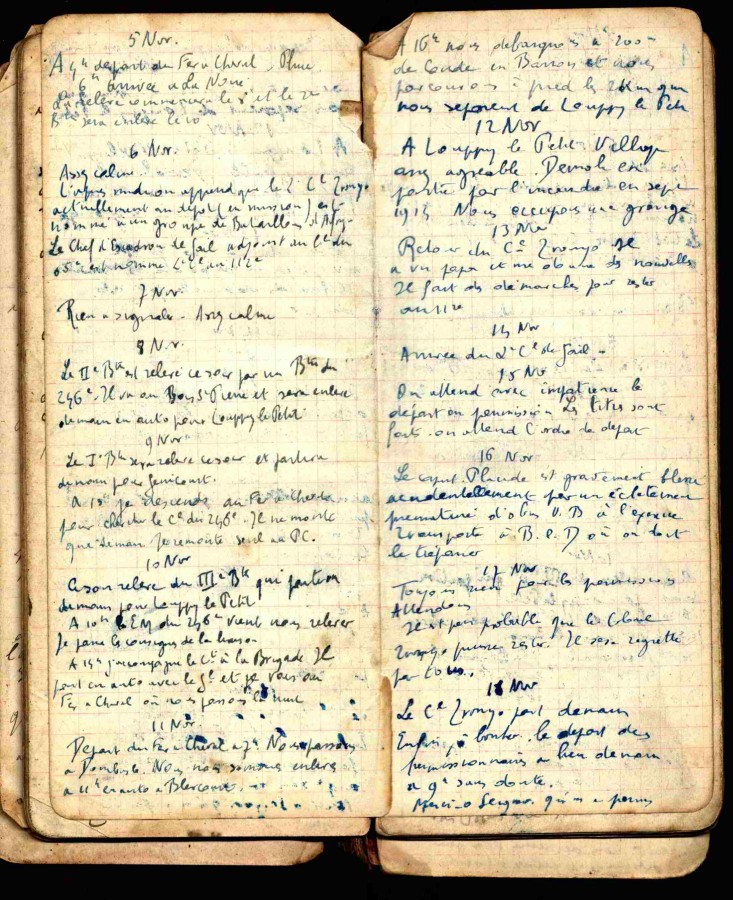 5 Nov.
A 4h depart du Fer a Cheval. Pluie
6h arrivée a la Noue
La relève commencera le 8 et le 2e
Bon sera enlevé le 10
6 Nov.
Assez calme.
L'après midi on apprend que le L Cel
actuellement au depot (en mission) est
nommé a un groupe de Bataillons
Le Chef d'Escadron de Gail adjoint au Cel du
est nommé Lt Cel au 112e
7 Nov.
Rien a signaler. Assez calme
8 Nov.
Le IIe Bon est relevé ce soir par un Bon du
246e. Il va au Bois St Pierre et sera enlevé
demain en auto pour Louppy le Petit
9 Nov
Le Ie Bon sera relevé ce soir et partira
demain pour Genicourt.
A 15h je descends au Fer a Cheval
pour chercher le Cel du 246e. Il ne monte
que demain. Je remonte seul au PC.
10 Nov
Ce soir relève du IIIe Bon qui partira
demain pour Louppy le Petit
A 10h l'EM du 246e vient nous relever
Je passe les consignes de la liaison
A 15h j'accompagne le Cel à la Brigade Il
part en auto avec le Gl et je vais au
Fer a Cheval où nous passons la nuit
11 Nov.
Depart du Fer a Cheval a 7h. Nous passons
a Dombasle. Nous nous sommes enlevés
a 11h en auto a Blercourt.
A 16h nous debarquons a 200m
de Condé en Barrois et nous
parcourons à pied les 2 Km qui
nous séparent de Louppy le Petit
12 Nov
A Louppy le Petit. Village
assez agréable. Demoli en
partie par l'incendie en sept
1914 Nous occupons une grange
13 Nov
Retour du Cel Il
a vu papa et me donne des nouvelles
Il fait des démarches pour rester
au 112e
14 Nov
Arrivée du Lt Cel de Gail.
15 Nov
On attend avec impatience le
départ en permission. Les titres sont
faits. on attend l'ordre de depart
16 Nov
Le capit. Plaude est gravement blessé
accidentellement par un éclatement
prematuré d'obus V.B à l'exercice
Transporté à B. l. D où on doit
le trépaner
17 Nov
Toujours rien pour les permissions
Attendons
Il est peu probable que le Colonel
puisse rester. Il sera regretté
par tous.
18 Nov
Le Cel part demain
Enfin, le depart des
permissionnaires a lieu demain
a 9h sans doute.
Merci o Seigneur qui m'a permis